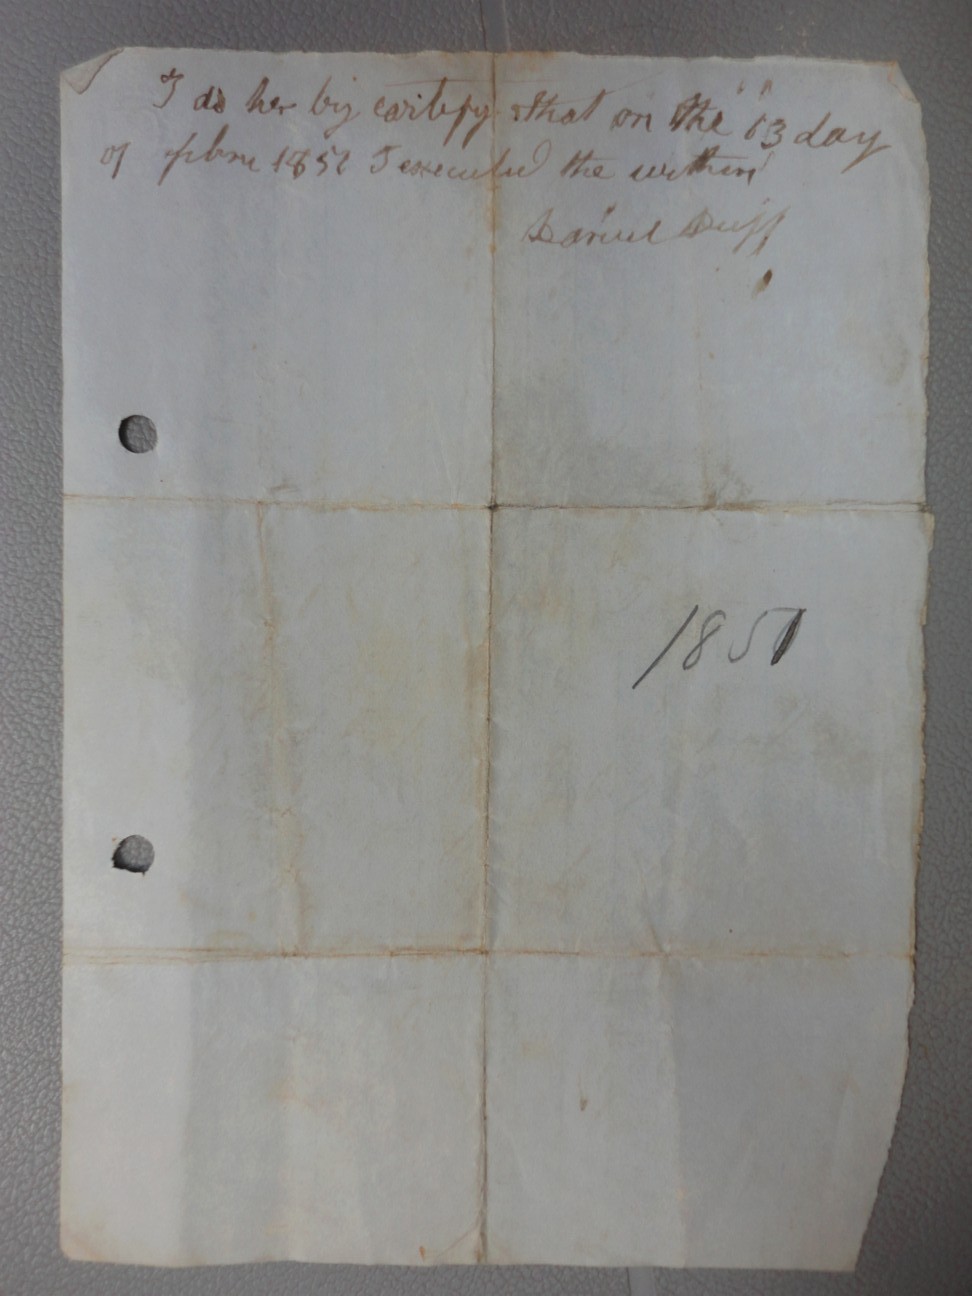 I do her by cartefy that on the 13 day
of 1851 I executed the within
Daniel Duff
1851